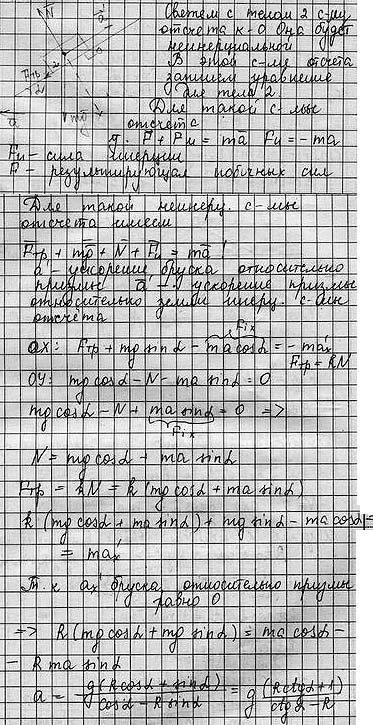 N
a'
Свяжем с телом 2 с-му
отсчёта к-о Она будет
неинерциальной
В этой с-ме отсчета
запишем уравнение
для тела 2
Fтр
α
a
mg
Для такой с-мы
отсчета
F + Fи = ma Fи = -ma
Fи - сила инерции
F - результирующая побочных сил
Для такой неинер. с-мы
отсчёта имеем
Fтр + mg + N + Fи = ma'
a' - ускорение бруска относительно
призмы a - ускорение призмы
относительно земли инер. с-мы
отсчёта
Fix
OX: Fтр + mg sinα - ma cosα = - ma'x
Fтр = kN
OY: mg cosα - N - ma sinα = 0
mg cosα - N + ma sinα = 0 =>
Fix
N = mg cosα + ma sinα
Fтр = kN = k (mg cosα + ma sinα)
k (mg cosα + ma sinα) + mg sinα - ma cosα =
= ma'x
Т. к a'x бруска относительно призмы
равно 0
=> k (mg cosα + mg sinα) = ma cosα -
- k ma sinα
a = g(k cosα + sinα) / cosα - k sinα = g (k ctgα + 1) / ctgα - k